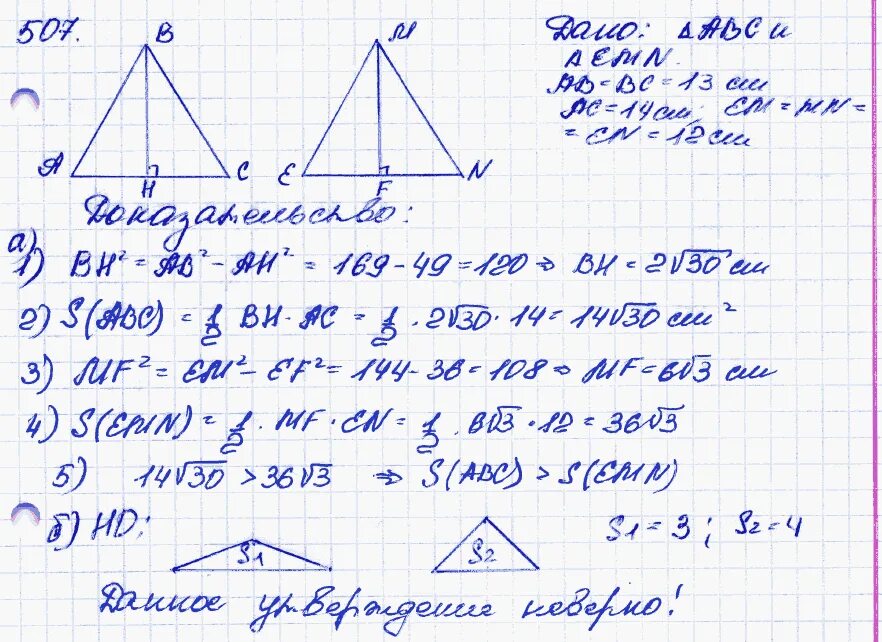 507.
B
M
A
H
C
E
F
N
Дано: ΔABC и
ΔEMN.
AB=BC=13 см
AC=14см; EM=MN=
=EN=12см
Доказательство:
а)
1) BH² = AB² - AH² = 169-49=120 ⇒ BH=2√30 см
2) S(ABC) = 1/2 BH·AC = 1/2 · 2√30 · 14 = 14√30 см²
3) MF² = EM² - EF² = 144-36=108 ⇒ MF=6√3 см
4) S(EMN) = 1/2 · MF · EN = 1/2 · 6√3 · 12 = 36√3
5) 14√30 > 36√3 ⇒ S(ABC) > S(EMN)
б) HD:
S1
S2
S1=3; S2=4
Данное утверждение неверно!